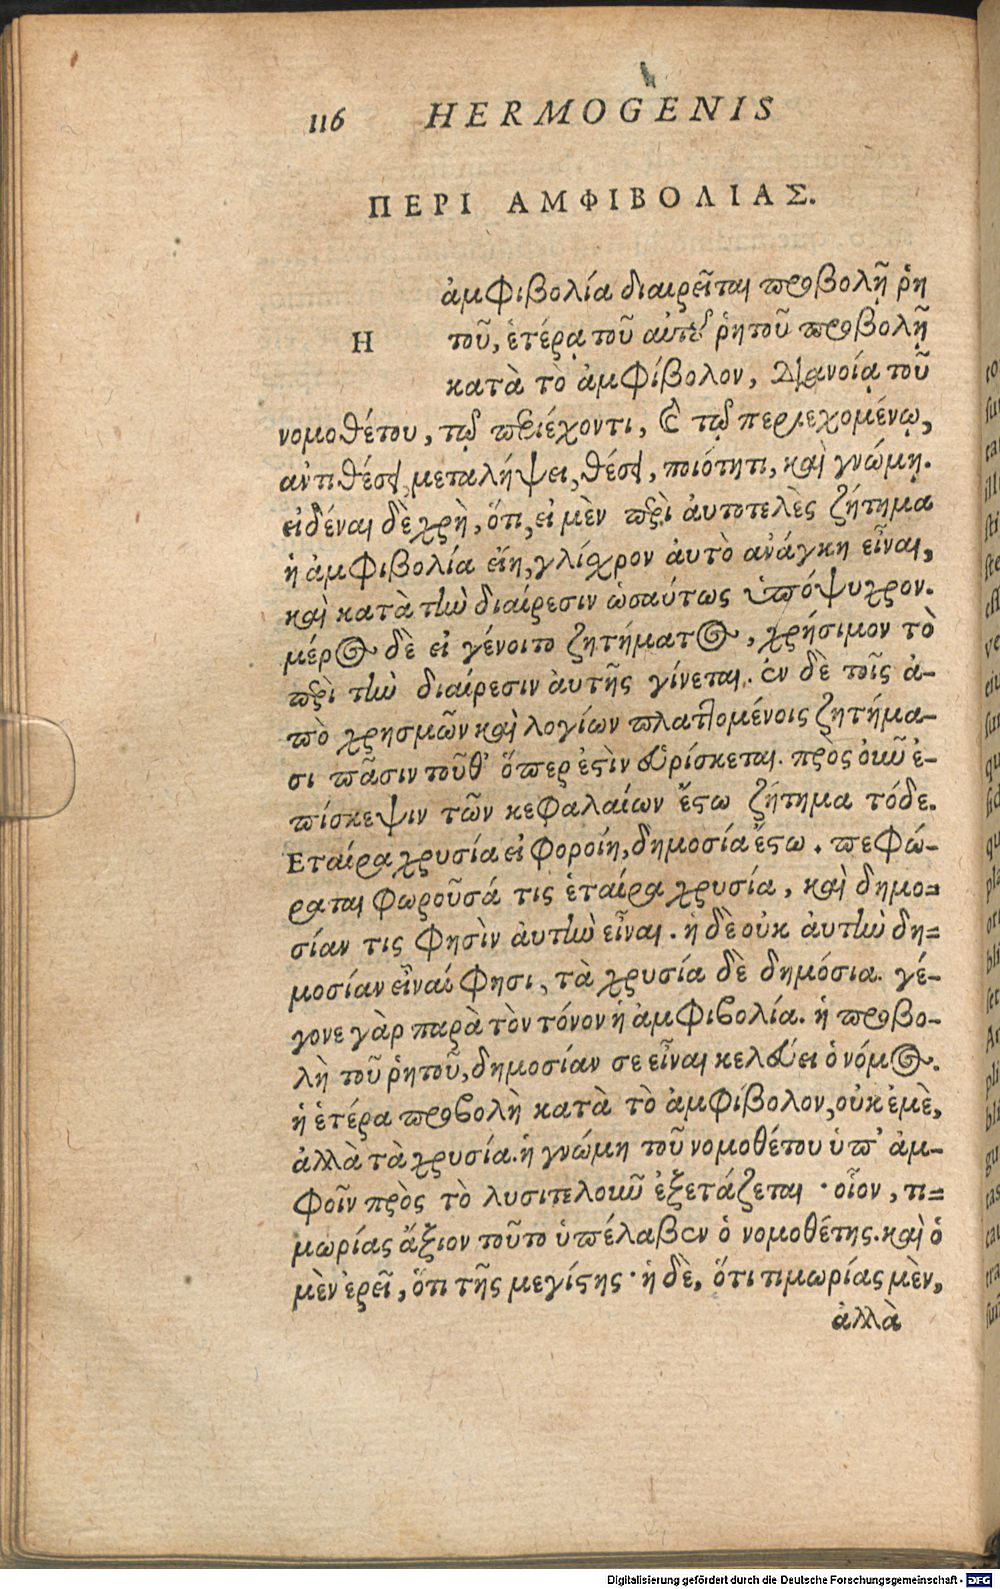 116 HERMOGENIS
ΠΕΡΙ ΑΜΦΙΒΟΛΙΑΣ.
ἀμφιβολία διαιρεῖται προβολῇ ῥη
Η τοῦ, ἑτέρᾳ τοῦ αὐτοῦ ῥητοῦ προβολῇ
κατὰ τὸ ἀμφίβολον, διανοίᾳ τοῦ
νομοθέτου, τῷ περιέχοντι, καὶ τῷ περιεχομένῳ,
ἀντιθέσει, μεταλήψει, θέσει, ποιότητι, καὶ γνώμῃ.
εἰδέναι δὲ χρὴ, ὅτι, εἰ μὲν περὶ ἀυτοτελὲς ζήτημα
ἡ ἀμφιβολία εἴη, γλίσχρον ἀυτὸ ἀνάγκη εἶναι,
καὶ κατὰ τὴν διαίρεσιν ὡσαύτως ὑπόψυχρον.
μέρος δὲ εἰ γένοιτο ζητήματος, χρήσιμον τὸ
περὶ τὴν διαίρεσιν ἀυτῆς γίνεται. ἐν δὲ τοῖς ἀ-
πὸ χρησμῶν καὶ λογίων πλαττομένοις ζητήμα-
σι πᾶσιν τοῦθ' ὅπερ ἐστὶν εὑρίσκεται. πρὸς οὖν ἐ-
πίσκεψιν τῶν κεφαλαίων ἔστω ζήτημα τόδε.
Εταίρα χρυσία εἰ φοροίη, δημοσία ἔστω. πεφώ-
ραται φωροῦσά τις ἑταίρα χρυσία, καὶ δημο-
σίαν τις φησὶν ἀυτὴν εἶναι. ἡ δὲ οὐκ ἀυτὴν δη-
μοσίαν εἶναί φησι, τὰ χρυσία δὲ δημόσια. γέ-
γονε γὰρ παρὰ τὸν τόνον ἡ ἀμφιβολία. ἡ προβο-
λὴ τοῦ ῥητοῦ, δημοσίαν σε εἶναι κελεύει ὁ νόμος.
ἡ ἑτέρα προβολὴ κατὰ τὸ ἀμφίβολον, οὐκ ἐμὲ,
ἀλλὰ τὰ χρυσία. ἡ γνώμη τοῦ νομοθέτου ὑπ' ἀμ-
φοῖν πρὸς τὸ λυσιτελοῦν ἐξετάζεται · οἷον, τι-
μωρίας ἄξιον τοῦτο ὑπέλαβεν ὁ νομοθέτης. καὶ ὁ
μὲν ἐρεῖ, ὅτι τῆς μεγίστης · ἡ δὲ, ὅτι τιμωρίας μὲν,
ἀλλὰ
Digitalisierung gefördert durch die Deutsche Forschungsgemeinschaft - DFG